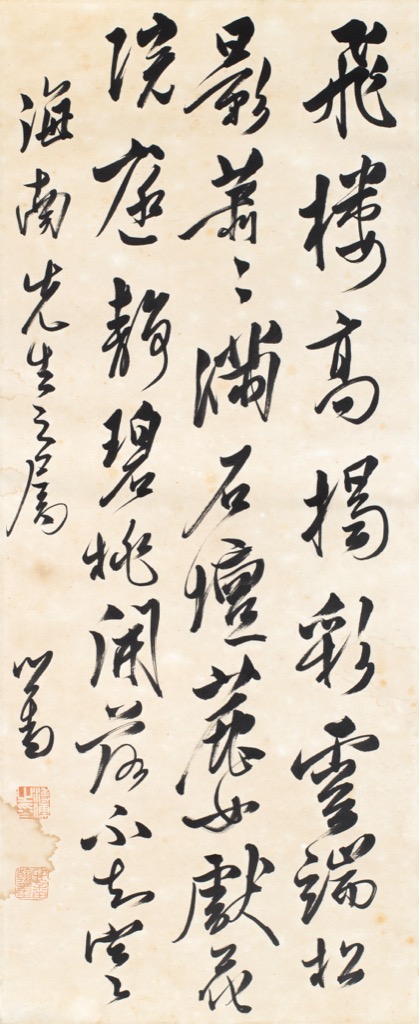 飛樓高揭彩雲端松
影蕭〻滿石壇鹿女獻花
院庭靜碧桃開落不知寒
海南先生之屬 心畬